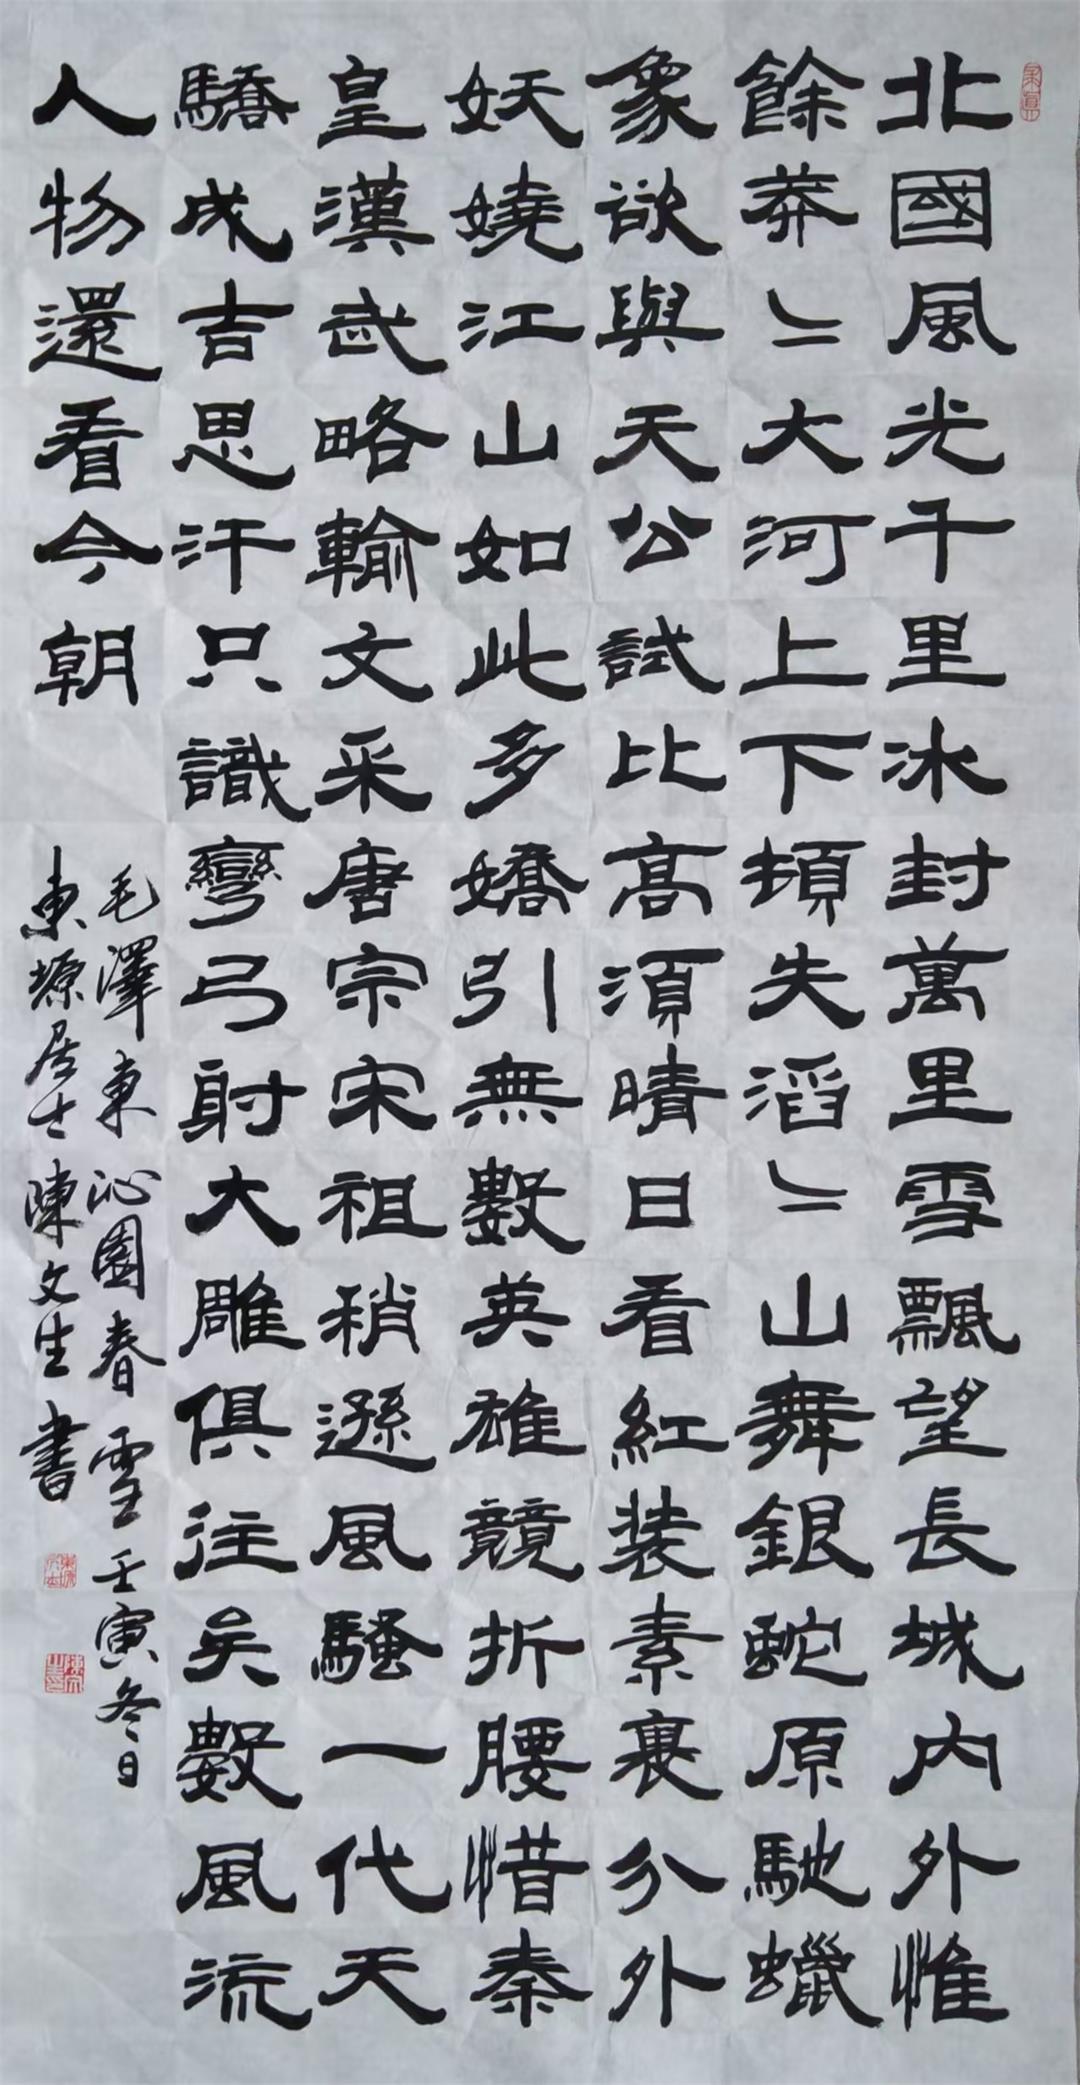 北國風光千里冰封萬里雪飄望長城內外惟
餘莽〻大河上下頓失滔〻山舞銀蛇原馳蠟
象欲與天公試比高須晴日看紅裝素裹分外
妖嬈江山如此多嬌引無數英雄競折腰惜秦
皇漢武略輸文采唐宗宋祖稍遜風騷一代天
驕成吉思汗只識彎弓射大雕俱往矣數風流
人物還看今朝
毛澤東沁園春雪壬寅冬日
東塬居士陳文生書